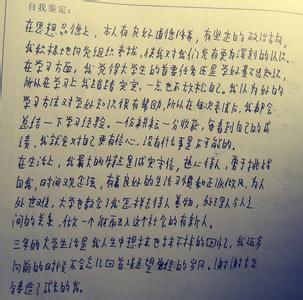 自我鉴定:
在思想品德上,本人有良好道德修养,有坚定的政治方向,
我积极地向党组织靠拢,使我对我们党有更为深刻的认识。
在学习方面,我觉得大学生的首要任务还是学好基础知识,
所以在学习上我踏踏实实,一点也不放松自己。我认为好的
学习方法对学好知识很有帮助,所以在每次考试后,我都会
总结一下学习经验。一份耕耘一分收获,每看到自己的成
绩,我就会对自己更有信心,没有什么事是不可能的。
在生活上,我最大的特点是诚实守信,热心待人,勇于挑战
自我,时间观念强,有着良好的生活习惯和正派作风。为人
处世对佳,大学也教会了我怎样去待人善物,处理人与人之
间的关系,做一个能融入这个社会的有新人。
三年的大学生活是我人生中想抹也抹不掉的回忆,我迈步
向前的时候不会忘记回首凝望曾经的岁月。谢谢大学
与铸造了成长的我。